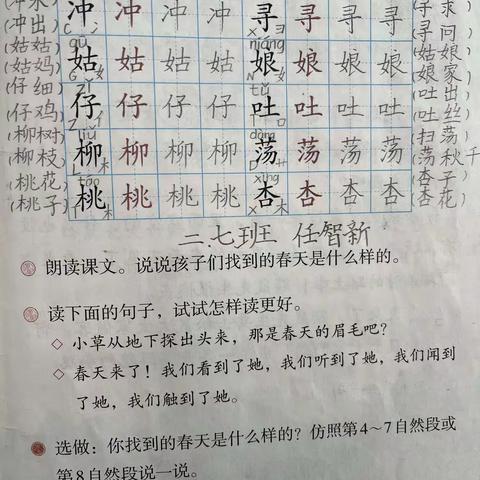 冲出 冲 冲 冲 冲 寻 寻 寻 寻 寻求
寻问
gū niáng
姑姑 姑 姑 姑 姑 娘 娘 娘 娘 姑娘
姑妈 娘家
zǐ tǔ
仔细 仔 仔 仔 仔 吐 吐 吐 吐 吐出
仔鸡 吐丝
liǔ dàng
柳树 柳 柳 柳 柳 荡 荡 荡 荡 扫荡
柳枝 荡秋千
táo xìng
桃花 桃 桃 桃 桃 杏 杏 杏 杏 杏子
桃子 杏花
二.七班 任智新
朗读课文。说说孩子们找到的春天是什么样的。
读下面的句子，试试怎样读更好。
◇ 小草从地下探出头来，那是春天的眉毛吧？
◇ 春天来了！我们看到了她，我们听到了她，我们闻到
了她，我们触到了她。
选做：你找到的春天是什么样的？仿照第4～7自然段或
第8自然段说一说。